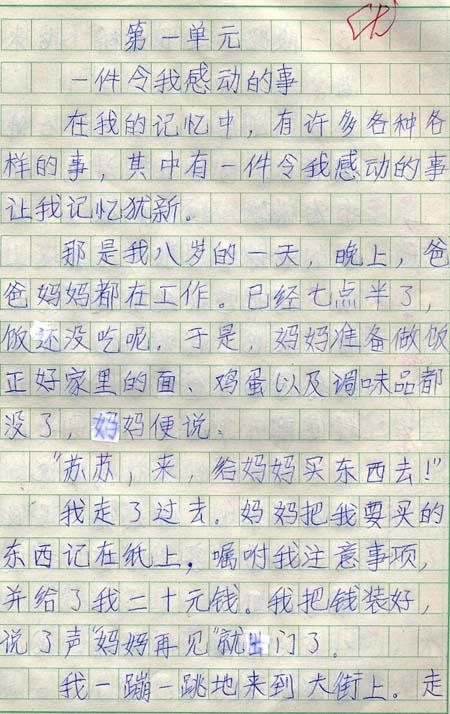 第一单元
一件令我感动的事
在我的记忆中，有许多各种各
样的事，其中有一件令我感动的事
让我记忆犹新。
那是我八岁的一天，晚上，爸
爸妈妈都在工作。已经七点半了，
饭还没吃呢，于是，妈妈准备做饭
正好家里的面、鸡蛋以及调味品都
没了，妈妈便说：
“苏苏，来，给妈妈买东西去！”
我走了过去。妈妈把我要买的
东西记在纸上，嘱咐我注意事项，
并给了我二十元钱。我把钱装好，
说了声“妈妈再见”就出门了。
我一蹦一跳地来到大街上。走